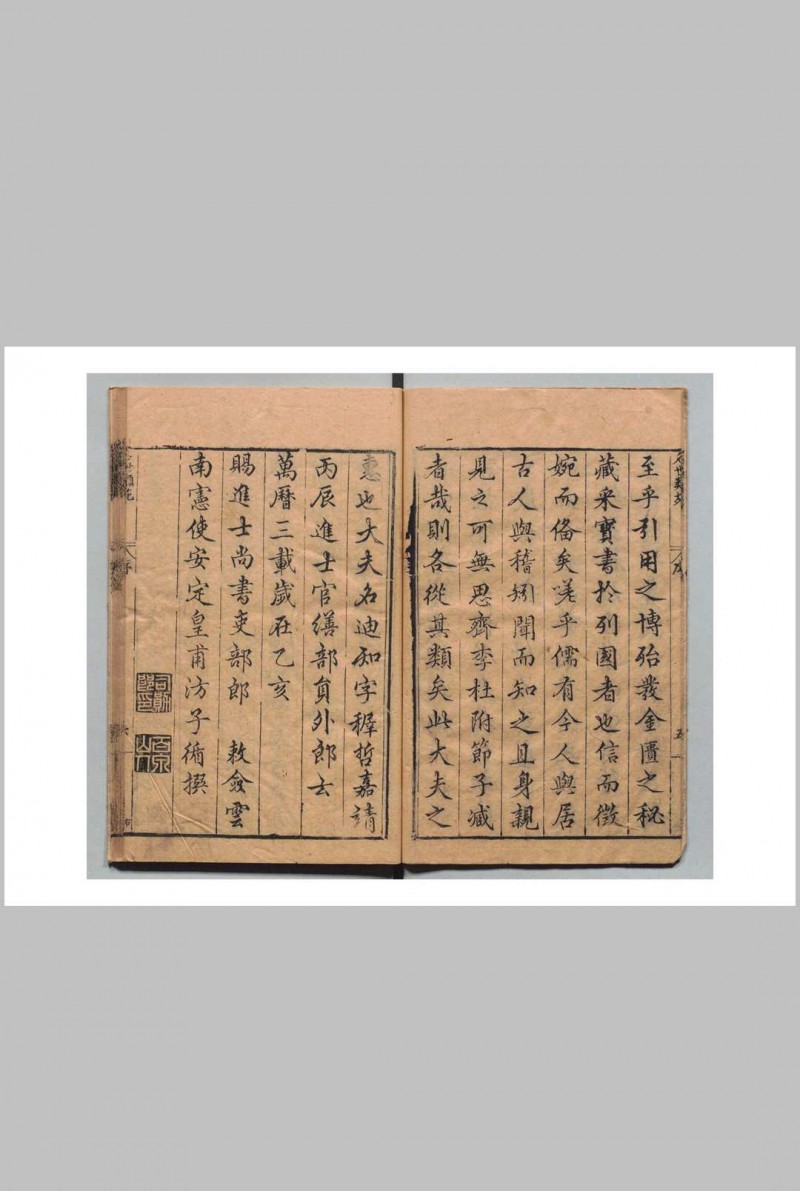 至乎引用之博殆發金匱之秘
藏采寶書於列國者也信而徵
婉而俻矣嗟乎儒有今人與居
古人與稽矧聞而知之且身親
見之可無思齊李杜附節子臧
者哉則各從其類矣此大夫之
惠也大夫名迪知字穉哲嘉靖
丙辰進士官繕部員外郎云
萬曆三載歲在乙亥
賜進士尚書吏部郎 敕僉雲
南憲使安定皇甫汸子循撰
司勳
郎印
百泉
山人